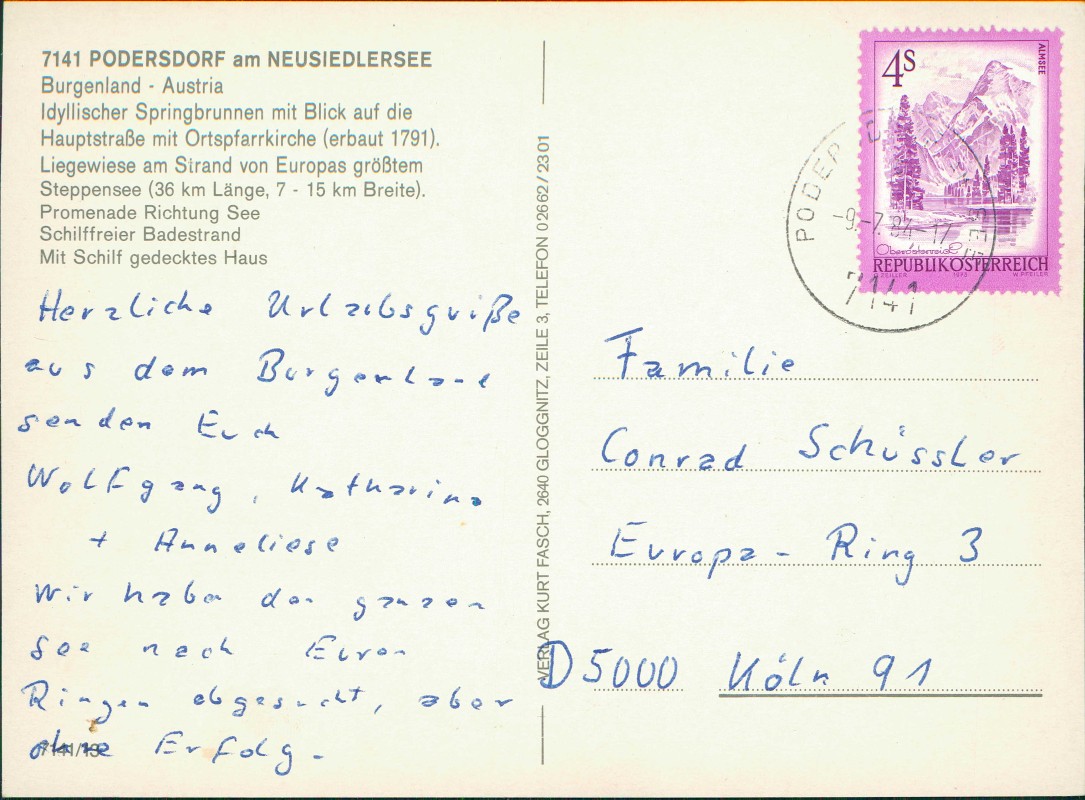 7141 PODERSDORF am NEUSIEDLERSEE
Burgenland - Austria
Idyllischer Springbrunnen mit Blick auf die
Hauptstraße mit Ortspfarrkirche (erbaut 1791).
Liegewiese am Strand von Europas größtem
Steppensee (36 km Länge, 7 - 15 km Breite).
Promenade Richtung See
Schilffreier Badestrand
Mit Schilf gedecktes Haus
Herzliche Urlaubsgrüße
aus dem Burgenland
senden Euch
Wolfgang, Katharina
+ Anneliese
Wir haben den ganzen
See nach Euren
Ringen abgesucht, aber
ohne Erfolg.
7141/13
VERLAG KURT FASCH, 2640 GLOGGNITZ, ZEILE 3, TELEFON 02662/2301
4S
ALMSEE
Oberösterreich
REPUBLIK ÖSTERREICH
-9.-7.84-17
7141
Familie
Conrad Schüssler
Europa-Ring 3
D 5000 Köln 91